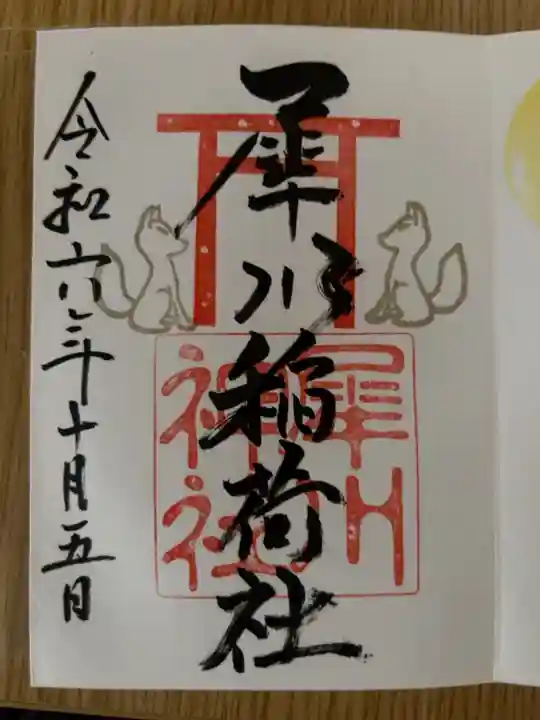 犀川稲荷社
令和六年十月五日
神社